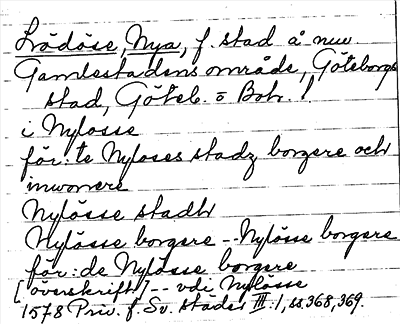 Lödöse, Nya, f. stad å nuv.
Gamlestadens område, Göteborgs
stad, Göteb. o Boh. l
i Nylosse
för:te Nyloses stadz borgere och
inwonere
Nylösse stadh
Nylösse borgere -- Nylösse borgere
för:de Nylösse borgere
[överskrift] -- vdi Nylösse
1578 Priv. f. Sv. städer III:1, ss. 368, 369.